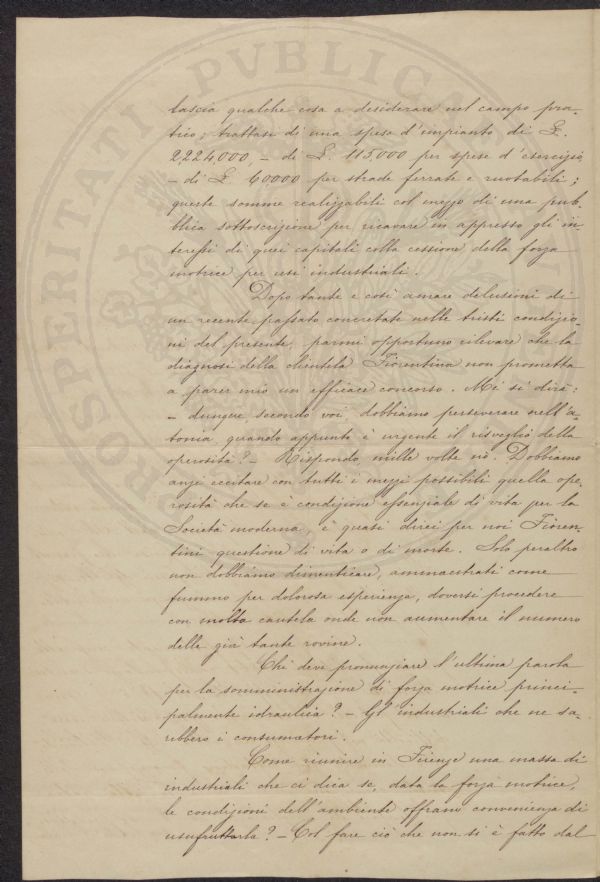 lascia qualche cosa a desiderare nel campo pra-
tico; trattasi di una spesa d'impianto di £.
2,224,000, – di £. 115,000 per spese d'esercizio
– di £ 60000 per strade ferrate e ruotabili;
queste somme realizzabili col mezzo di una pub-
blica sottoscrizione per ricavare in appresso gli in-
teressi di quei capitali colla cessione della forza
motrice per usi industriali.
Dopo tante e così amare delusioni di
un recente passato concretate nelle tristi condizio-
ni del presente, parmi opportuno rilevare che la
diagnosi della clientela Fiorentina non prometta
a parer mio un efficace concorso. Mi si dirà:
– dunque, secondo voi, dobbiamo perseverare nell'a-
tonia, quando appunto è urgente il risveglio della
operosità? – Rispondo, mille volte nò. Dobbiamo
anzi eccitare con tutti i mezzi possibili quella ope-
rosità che se è condizione essenziale di vita per la
Società moderna, è quasi direi per noi Fioren-
tini questione di vita o di morte. Solo peraltro
non dobbiamo dimenticare, ammaestrati come
fummo per dolorosa esperienza, doversi procedere
con molta cautela onde non aumentare il numero
delle già tante rovine.
Chi deve pronunziare l'ultima parola
per la somministrazione di forza motrice princi-
palmente idraulica? – Gl'industriali che ne sa-
rebbero i consumatori.
Come riunire in Firenze una massa di
industriali che ci dica se, data la forza motrice,
le condizioni dell'ambiente offrano convenienza di
usufruttarla? – Col fare ciò che non si è fatto dal
PROSPERITATI PVBLICAE